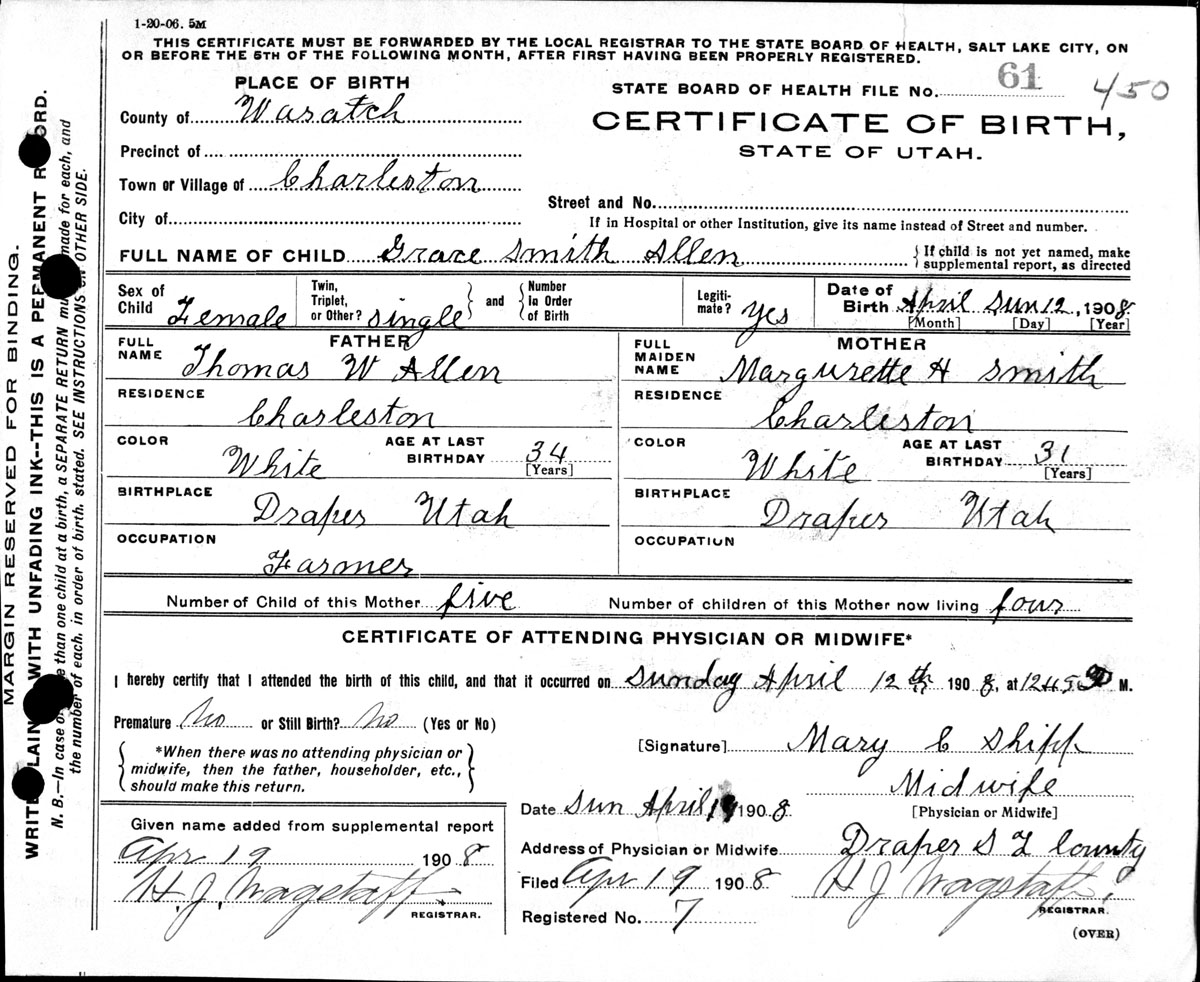 1-20-06. 5M
THIS CERTIFICATE MUST BE FORWARDED BY THE LOCAL REGISTRAR TO THE STATE BOARD OF HEALTH, SALT LAKE CITY, ON
OR BEFORE THE 5TH OF THE FOLLOWING MONTH, AFTER FIRST HAVING BEEN PROPERLY REGISTERED.
PLACE OF BIRTH
STATE BOARD OF HEALTH FILE No. 61 450
County of Wasatch
CERTIFICATE OF BIRTH,
STATE OF UTAH.
Precinct of
Town or Village of Charleston
Street and No.
City of
If in Hospital or other Institution, give its name instead of Street and number.
FULL NAME OF CHILD Grace Smith Allen
If child is not yet named, make
supplemental report, as directed
Sex of Child Female
Twin, Triplet, or Other? single
and
Number In Order of Birth
Legiti-mate? Yes
Date of Birth April Sun 12, 1908
[Month] [Day] [Year]
FATHER
FULL NAME Thomas W Allen
MOTHER
FULL MAIDEN NAME Margurette H Smith
RESIDENCE Charleston
RESIDENCE Charleston
COLOR White AGE AT LAST BIRTHDAY 34 [Years]
COLOR White AGE AT LAST BIRTHDAY 31 [Years]
BIRTHPLACE Draper Utah
BIRTHPLACE Draper Utah
OCCUPATION Farmer
OCCUPATION
Number of Child of this Mother five Number of children of this Mother now living four
CERTIFICATE OF ATTENDING PHYSICIAN OR MIDWIFE*
I hereby certify that I attended the birth of this child, and that it occurred on Sunday April 12th 1908, at 1245 M.
Premature No or Still Birth? No (Yes or No)
*When there was no attending physician or
midwife, then the father, householder, etc.,
should make this return.
[Signature] Mary C Shipp
Midwife
[Physician or Midwife]
Date Sun April 19 1908
Given name added from supplemental report
Apr 19 1908
H. J. Wagstaff
REGISTRAR.
Address of Physician or Midwife Draper S L County
Filed Apr 19 1908 H J Wagstaff
REGISTRAR.
Registered No. 7
(OVER)
MARGIN RESERVED FOR BINDING.
WRITE PLAINLY WITH UNFADING INK--THIS IS A PERMANENT RECORD.
N. B.—In case of more than one child at a birth, a SEPARATE RETURN must be made for each, and
the number of each, in order of birth, stated. SEE INSTRUCTIONS ON OTHER SIDE.